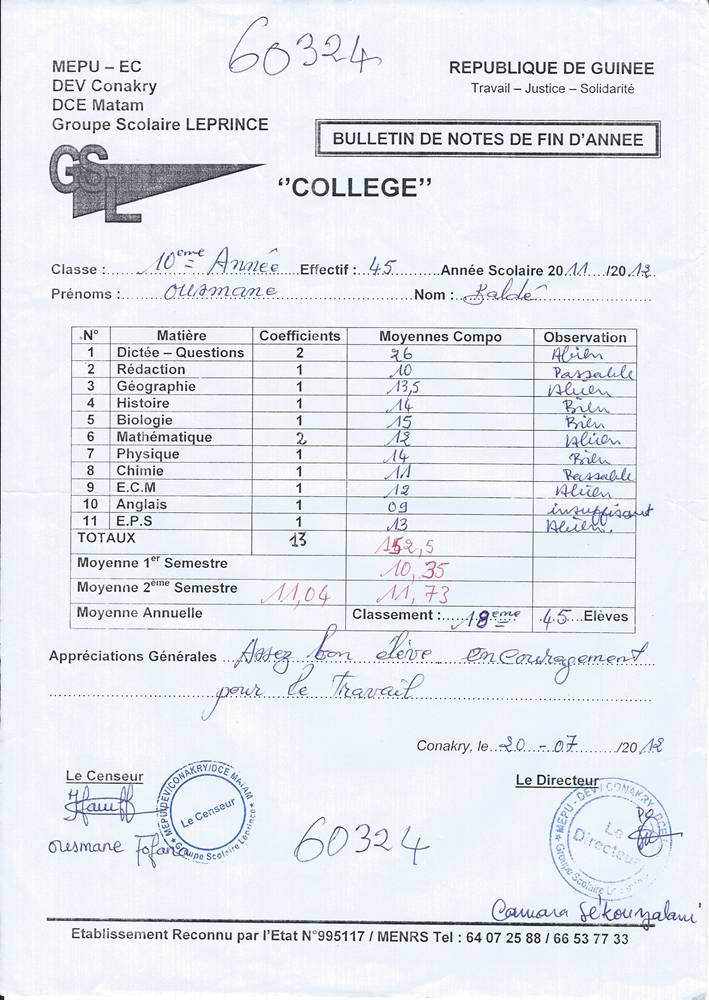 60324
MEPU – EC
DEV Conakry
DCE Matam
Groupe Scolaire LEPRINCE
REPUBLIQUE DE GUINEE
Travail – Justice – Solidarité
BULLETIN DE NOTES DE FIN D'ANNEE
GSL
‘’COLLEGE’’
Classe : 10eme Année Effectif : 45 Année Scolaire 2011/2012
Prénoms : Ousmane Nom : Baldé
N° Matière Coefficients Moyennes Compo Observation
1 Dictée – Questions 2 26 Abien
2 Rédaction 1 10 Passable
3 Géographie 1 13,5 Abien
4 Histoire 1 14 Bien
5 Biologie 1 15 Bien
6 Mathématique 2 12 Abien
7 Physique 1 14 Bien
8 Chimie 1 11 Passable
9 E.C.M 1 12 Abien
10 Anglais 1 09 insuffisant
11 E.P.S 1 13 Abien.
TOTAUX 13 152,5
Moyenne 1er Semestre 10,35
Moyenne 2ème Semestre 11,04 11,73
Moyenne Annuelle Classement : 18eme 45 Elèves
Appréciations Générales Assez bon élève encouragement
pour le travail
Conakry, le 20-07/2012
Le Censeur
Le Directeur
MEPU/DEV/CONAKRY/DCE MATAM
Le Censeur
Groupe Scolaire Leprince
MEPU - DEV/CONAKRY/DCE
Le Directeur
Groupe Scolaire
Ousmane Fofana
60324
Camara Sékouzalani
Etablissement Reconnu par l'Etat N°995117 / MENRS Tel : 64 07 25 88 / 66 53 77 33